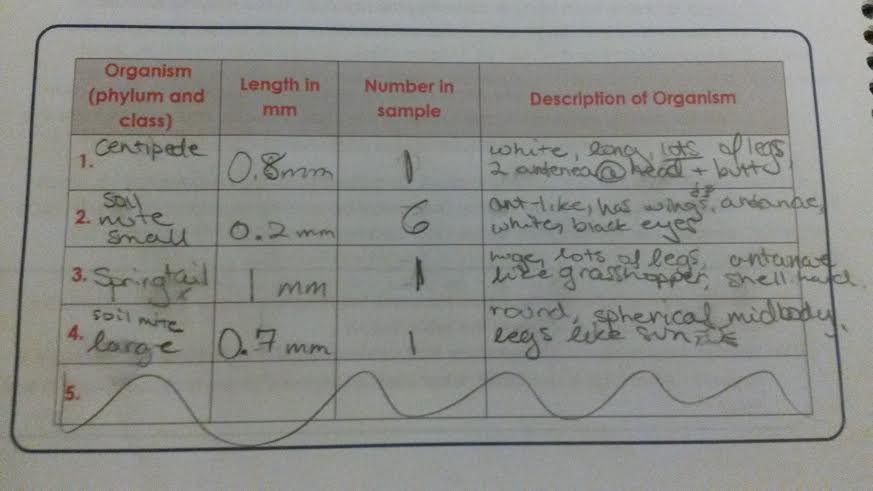 Organism
(phylum and
class)
Length in
mm
Number in
sample
Description of Organism
1. Centipede
0.8mm
1
white, long, lots of legs
2 antenea @ head + butt
2. soil
mite
small
0.2 mm
6
ant-like, has wings, antanae,
white, black eyes
3. Springtail
1 mm
1
huge, lots of legs, antanae
like grasshopper, shell hard.
4. soil mite
large
0.7 mm
1
round, spherical midbody,
legs like sun
5.